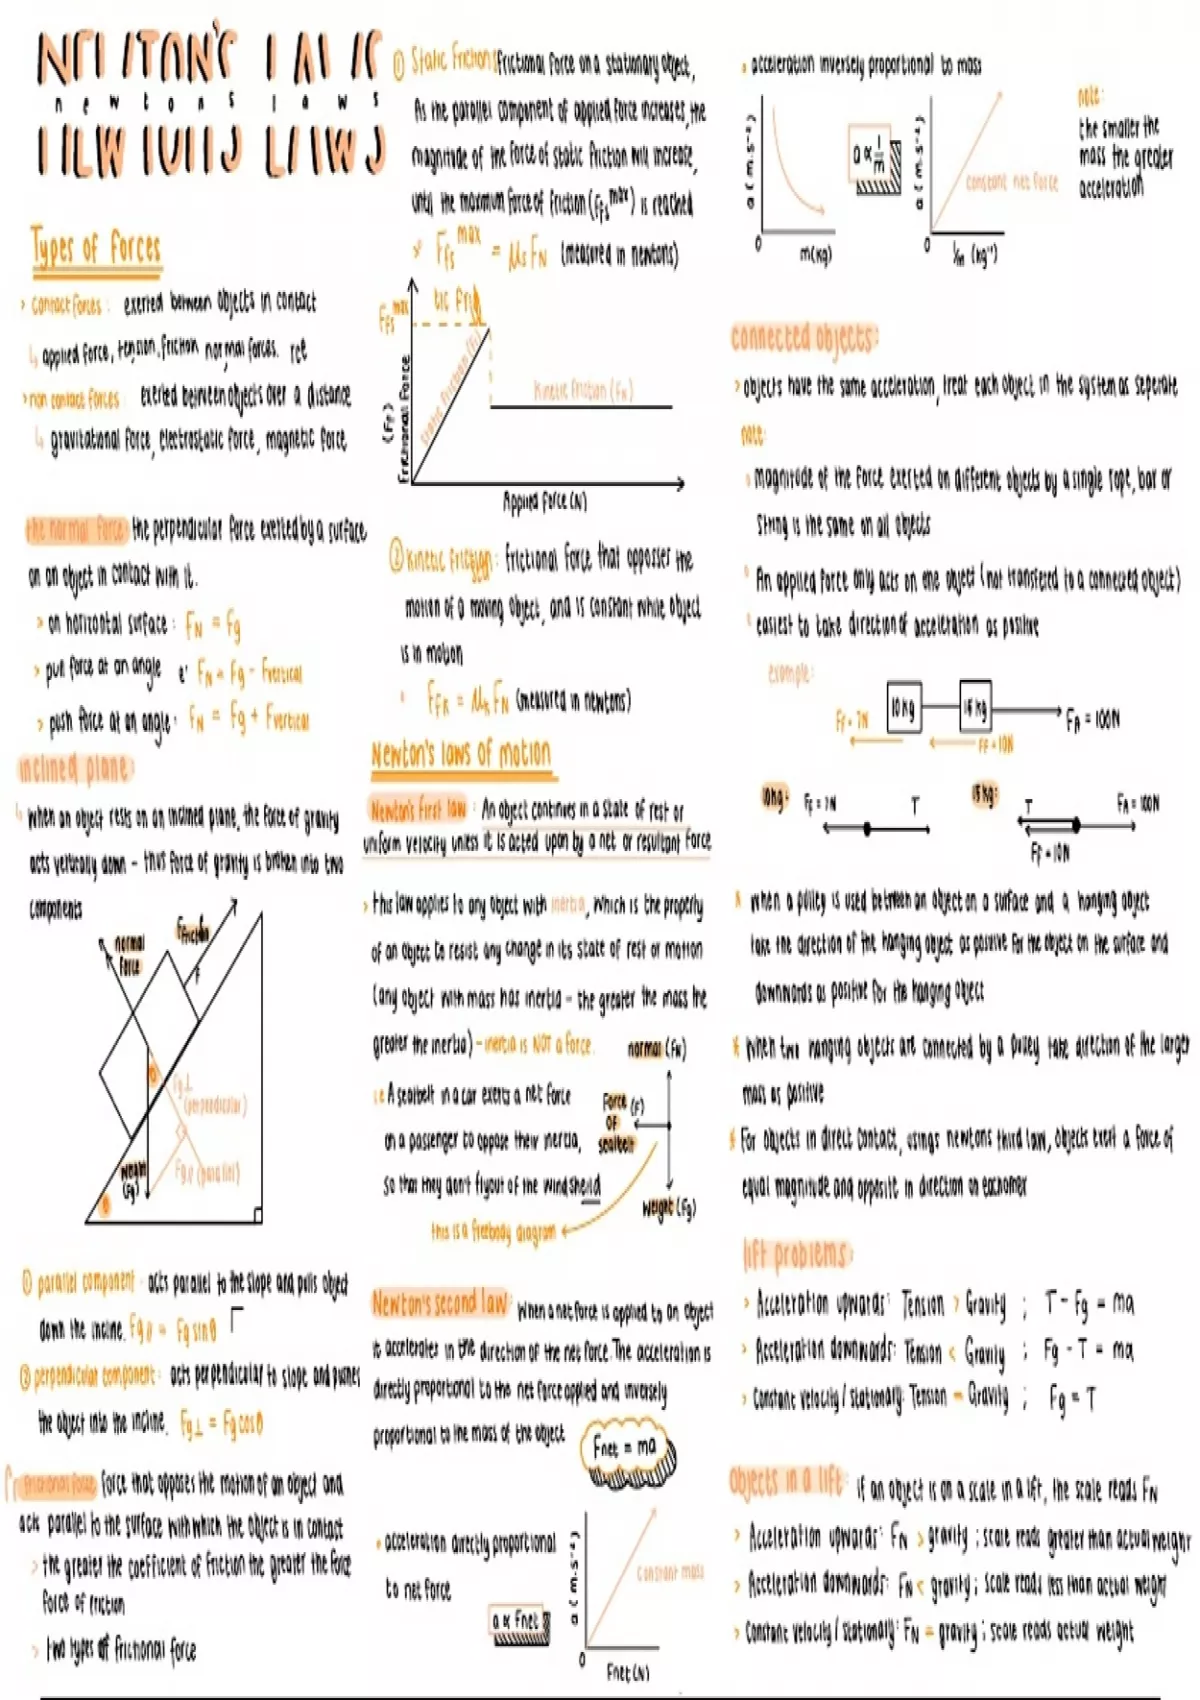 NEWTON'S LAWS
newtons laws
NEWTONS LAWS
Types of forces
> contact forces : exerted between objects in contact
↳ applied force, tension, friction, normal forces.
> non contact forces : exerted between objects over a distance
↳ gravitational force, electrostatic force, magnetic force
the normal force the perpendicular force exerted by a surface
on an object in contact with it.
> on horizontal surface : FN = Fg
> pull force at an angle FN = Fg - Fvertical
> push force at an angle : FN = Fg + Fvertical
inclined plane:
↳ When an object rests on an inclined plane, the force of gravity
acts vertically down - thus force of gravity is broken into two
components
normal
force
Ffriction
F
θ
Fg⊥
(perpendicular)
weight
(Fg)
Fg∥ (parallel)
θ
① parallel component : acts parallel to the slope and pulls object
down the incline. Fg∥ = Fg sinθ
② perpendicular component : acts perpendicular to slope and pushes
the object into the incline. Fg⊥ = Fg cosθ
frictional force force that opposes the motion of an object and
acts parallel to the surface with which the object is in contact
> the greater the coefficient of friction the greater the force
force of friction
> two types of frictional force
① Static friction : frictional force on a stationary object,
As the parallel component of applied force increases, the
magnitude of the force of static friction will increase,
until the maximum force of friction (Ffs max) is reached
> Ffs max = μs FN (measured in newtons)
Ffs max
(Ff)
Frictional Force
static friction (Fs)
Kinetic friction (FK)
Applied force (N)
② kinetic friction : frictional force that opposses the
motion of a moving object, and is constant while object
is in motion
FfK = μk FN (measured in newtons)
Newton's laws of motion
Newton's first law : An object continues in a state of rest or
uniform velocity unless it is acted upon by a net or resultant force
> this law applies to any object with inertia, which is the property
of an object to resist any change in its state of rest or motion
(any object with mass has inertia - the greater the mass the
greater the inertia) - inertia is NOT a force.
i.e A seatbelt in a car exerts a net force
on a passenger to oppose their inertia,
So that they don't flyout of the windsheild
normal (FN)
Force (F)
OF
seatbelt
Weight (Fg)
this is a freebody diagram
Newton's second law : When a net force is applied to an object
it accelerates in the direction of the net force. The acceleration is
directly proportional to the net force applied and inversely
proportional to the mass of the object
Fnet = ma
• acceleration directly proportional
to net force
a ∝ Fnet
a (m·s⁻²)
constant mass
0
Fnet (N)
• acceleration inversely proportional to mass
a (m·s⁻²)
0
m(kg)
a ∝ 1/m
a (m·s⁻²)
constant net force
0
1/m (kg⁻¹)
note:
the smaller the
mass the greater
acceleration
connected objects:
> objects have the same acceleration, treat each object in the system as seperate
note:
magnitude of the force exerted on different objects by a single rope, bar or
string is the same on all objects
An applied force only acts on one object (not transfered to a connected object)
easiest to take direction of acceleration as positive
example:
10kg
15kg
Ff = 7N
FA = 100N
Ff = 10N
10kg:
Ff = 7N
T
15kg:
T
FA = 100N
Ff = 10N
* when a pulley is used between an object on a surface and a hanging object
take the direction of the hanging object as positive for the object on the surface and
downwards as positive for the hanging object
* When two hanging objects are connected by a pulley take direction of the larger
mass as positive
* For objects in direct contact, using newtons third law, objects exert a force of
equal magnitude and opposite in direction on eachother
lift problems:
> Acceleration upwards: Tension > Gravity ; T - Fg = ma
> Acceleration downwards: Tension < Gravity ; Fg - T = ma
> Constant velocity / stationary: Tension = Gravity ; Fg = T
Objects in a lift : if an object is on a scale in a lift, the scale reads FN
> Acceleration upwards: FN > gravity ; scale reads greater than actual weight
> Acceleration downwards: FN < gravity ; scale reads less than actual weight
> Constant velocity / stationary: FN = gravity ; scale reads actual weight